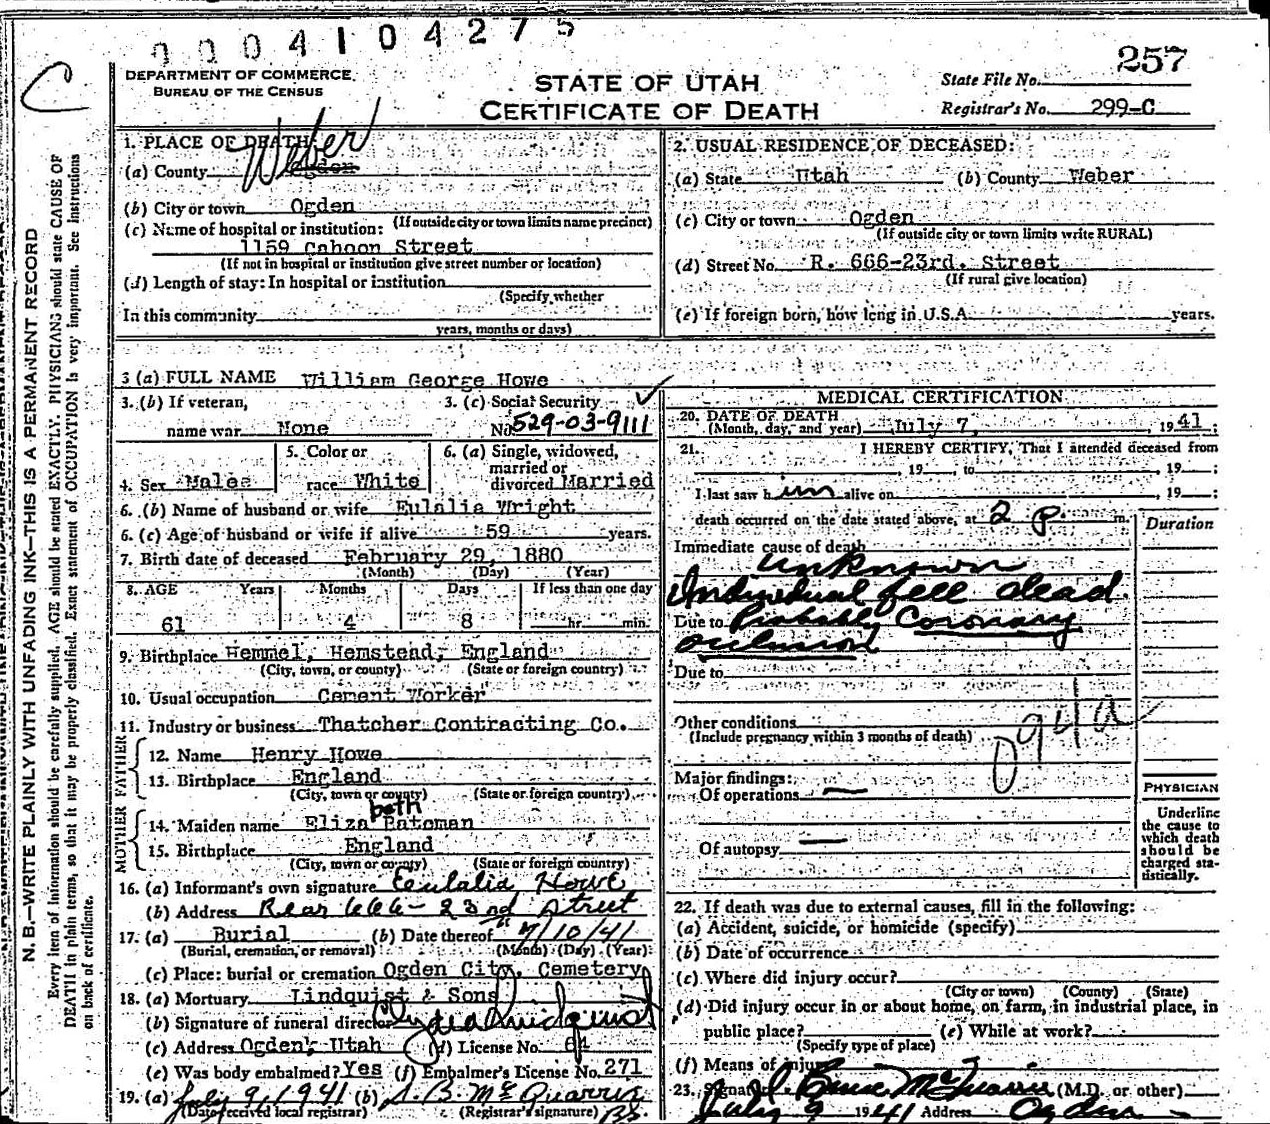 0004104275
C
257
DEPARTMENT OF COMMERCE
BUREAU OF THE CENSUS
STATE OF UTAH
CERTIFICATE OF DEATH
State File No.
Registrar's No. 299-C
N. B.—WRITE PLAINLY WITH UNFADING INK—THIS IS A PERMANENT RECORD
Every item of information should be carefully supplied. AGE should be stated EXACTLY. PHYSICIANS should state CAUSE OF
DEATH in plain terms, so that it may be properly classified. Exact statement of OCCUPATION is very important. See instructions
on back of certificate.
1. PLACE OF DEATH
(a) County Weber Ogden
(b) City or town Ogden
(If outside city or town limits name precinct)
(c) Name of hospital or institution:
1159 Cahoon Street
(If not in hospital or institution give street number or location)
(d) Length of stay: In hospital or institution
(Specify whether
In this community
years, months or days)
2. USUAL RESIDENCE OF DECEASED:
(a) State Utah (b) County Weber
(c) City or town Ogden
(If outside city or town limits write RURAL)
(d) Street No. R. 666-23rd. Street
(If rural give location)
(e) If foreign born, how long in U.S.A. years.
3 (a) FULL NAME William George Howe
3. (b) If veteran, 3. (c) Social Security
name war None No. 529-03-9111
4. Sex Male 5. Color or race White 6. (a) Single, widowed, married or divorced Married
6. (b) Name of husband or wife Eulalia Wright
6. (c) Age of husband or wife if alive 59 years.
7. Birth date of deceased February 29, 1880
(Month) (Day) (Year)
8. AGE Years Months Days If less than one day
61 4 8 hr. min.
9. Birthplace Hemmel, Hemstead, England
(City, town, or county) (State or foreign country)
10. Usual occupation Cement Worker
11. Industry or business Thatcher Contracting Co.
FATHER
12. Name Henry Howe
13. Birthplace England
(City, town or county) (State or foreign country)
MOTHER
14. Maiden name Eliza beth Batoman
15. Birthplace England
(City, town or county) (State or foreign country)
16. (a) Informant's own signature Eulalia Howe
(b) Address Rear 666-23rd Street
17. (a) Burial (b) Date thereof 7/10/41
(Burial, cremation, or removal) (Month) (Day) (Year)
(c) Place: burial or cremation Ogden City, Cemetery
18. (a) Mortuary Lindquist & Sons
(b) Signature of funeral director Clyde Lindquist
(c) Address Ogden, Utah (d) License No. 64
(e) Was body embalmed? Yes (f) Embalmer's License No. 271
19. (a) July 9, 1941 (b) J. B. McQuarrie
(Date received local registrar) (Registrar's signature) BS.
MEDICAL CERTIFICATION
20. DATE OF DEATH
(Month, day, and year) July 7, 1941;
21. I HEREBY CERTIFY, That I attended deceased from
, 19 , to , 19 ;
I last saw h im alive on , 19 ;
death occurred on the date stated above, at 2 p. m.
Duration
Immediate cause of death
unknown
Individual fell dead.
Due to Probably Coronary
occlusion
Due to
Other conditions
(Include pregnancy within 3 months of death)
094a
Major findings:
Of operations —
Of autopsy —
PHYSICIAN
Underline
the cause to
which death
should be
charged sta-
tistically.
22. If death was due to external causes, fill in the following:
(a) Accident, suicide, or homicide (specify)
(b) Date of occurrence
(c) Where did injury occur?
(City or town) (County) (State)
(d) Did injury occur in or about home, on farm, in industrial place, in
public place? (e) While at work?
(Specify type of place)
(f) Means of injury
23. Signature McQuarrie (M.D. or other)
July 9 1941 Address Ogden